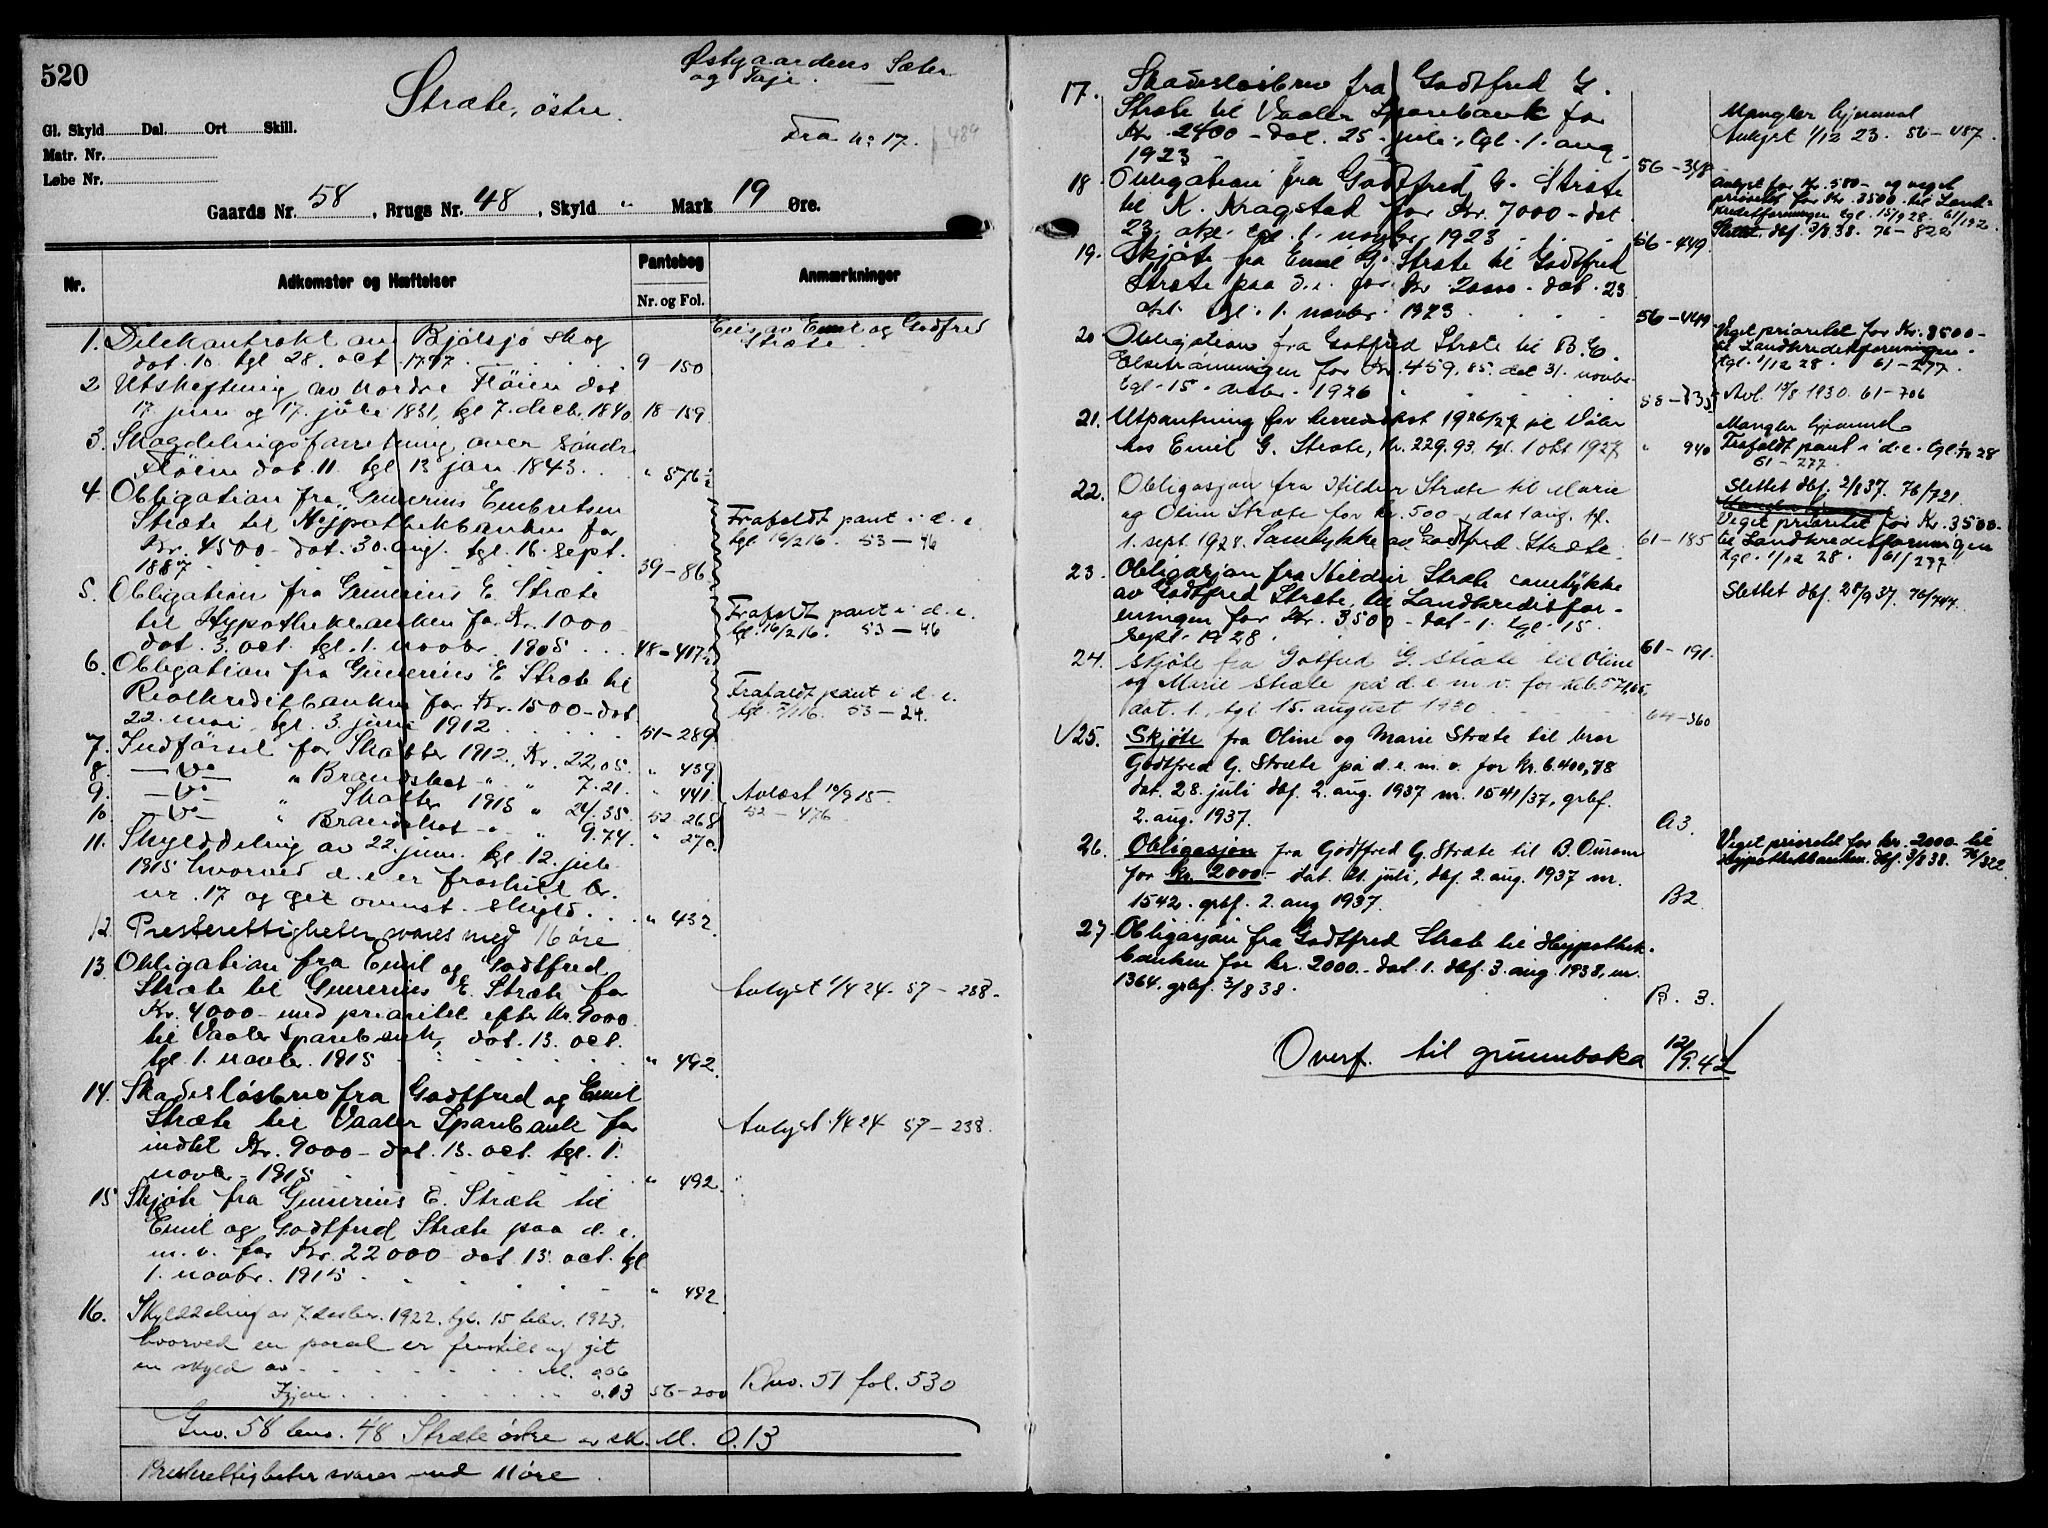 520
Stræte, östre.
Østgaardens Sæter
og Taje.
Gl. Skyld Dal. Ort Skill.
Matr. Nr.
Løbe Nr.
Fra nr 17. 489
Gaards Nr. 58, Brugs Nr. 48, Skyld " Mark 19 Øre.
Nr. Adkomster og Hæftelser Pantebog Nr. og Fol. Anmærkninger
Eies av Emil og Godfred
Stræte
1. Delekontrakt om Bjölsjö skog
dat. 10 tgl 28. oct 1797 9 150
2 Utskiftning av nordre Flöien dat
17. juni og 17. juli 1831, tgl 7. decb. 1840 18-159
3. Skogdelingsforretning over söndre
Flöien dat. 11. tgl 13 jan. 1843. " 576½
4. Obligation fra Gunerius Embretsen
Stræte til Hypothekbanken for
Kr. 4500- dat. 30. aug. tgl. 16. sept.
1887 39-86
Frafaldt pant i d. e.
tgl 16/2 16. 53-46
5. Obligation fra Gunerius E. Stræte
til Hypothekbanken for Kr. 1000
dat. 3. oct. tgl. 1. novbr. 1905 48-417½
Frafaldt pant i d. e.
tgl. 16/2 16. 53-46
6. Obligation fra Gunerius E Stræte til
Realkreditbanken for Kr. 1500- dat
22. mai, tgl. 3. juni 1912 51-289
Frafaldt pant i d. e.
tgl. 5/1 16. 53-24.
7. Indförsel for Skatter 1912, Kr. 22,05. " 439.
8. -"- " Brandskat " 7.21. " 441.
9. -"- " Skatter 1913 " 24.35. 52-268
10. -"- " Brandskat " 9.74. " 270.
Avlæst 10/9 15.
52-476
11. Skylddeling av 22. juni. tgl. 12. juli
1915 hvorved d. e er fraskilt br.
nr. 17 og git ovenst. skyld. " 432.
12. Presterettigheter svares med 16 öre
13. Obligation fra Emil og Godtfred
Stræte til Gunerius E. Stræte for
Kr. 4000- med prioritet efter Kr. 9000
til Vaaler Sparebank, dat. 13. oct.
tgl 1. novbr. 1915 " 492.
Avlyst 1/4 24. 57-238.
14. Skadeslösbrev fra Godtfred og Emil
Stræte til Vaaler Sparebank for
indtil Kr. 9000- dat. 13. oct. tgl. 1.
novbr. 1915 " 492.
Avlyst 1/4 24 57-238.
15 Skjöte fra Gunerius E. Stræte til
Emil og Godtfred Stræte paa d. e.
m. v. for Kr. 22000- dat. 13. oct. tgl
1. novbr. 1915 " 492
16. Skylddeling av 7. desbr. 1922. tgl. 15 febr. 1923.
hvorved en parcel er fraskilt og git
en skyld av M. 0.06
Igjen 0.13 56-200
Bno. 51 fol. 530
Gno. 58 bno. 48 Stræte östre er sk. M. 0.13
Presterettigheter svares med 11 öre.
17. Skadeslösbrev fra Godtfred G.
Stræte til Vaaler Sparebank for
Kr. 2400- dat. 25. juli, tgl. 1. aug.
1923 56-348
Mangler hjemmel
Avlyst 1/12 23. 56-487.
18. Obligation fra Godtfred G. Stræte
til K. Kragstad for Kr. 7000- dat
23. okt. tgl. 1. novbr 1923 56-449
Avlyst for Kr. 500- og veget
prioritet for Kr. 3500 til Land-
kreditforeningen tgl. 15/9 28. 61/192.
Slettet dbf. 3/8 38. 76-822
19. Skjöte fra Emil G. Stræte til Godtfred
Stræte paa d. e. for Kr 20000- dat. 23
okt. tgl. 1. novbr. 1923 56-449
20 Obligation fra Gotfred Stræte til B. C.
for Kr. 459.85. dat 31. novbr
tgl. 15. desbr. 1926
Veget prioritet for Kr. 3500-
til Landkreditforeningen.
tgl. 1/12 28. 61-277.
Avl. 15/8 1930. 61-706
21. Utpantning for herredskat 1926/27 til Våler
hos Emil G. Stræte, Kr. 229.93. tgl. 1 okt 1927 " 940
Mangler hjemmel
Frafaldt pant i d. e. tgl. 1/12 28
61-277
22. Obligasjon fra Hildur Stræte til Marie
og Oline Stræte for Kr. 500-, dat 1 aug. tgl.
1. sept. 1928. Samtykke av Godtfred Stræte 61-185
Slettet dbf. 2/8 37. 76/721.
Veget prioritet for Kr. 3500-
til Landkreditforeningen
tgl. 1/12 28. 61/277
23. Obligasjon fra Hildur Stræte samtykke
av Godtfred Stræte, til Landkreditfor-
eningen for Kr. 3500- dat. 1. tgl. 15.
sept. 1928. 61-191.
Slettet dbf. 28/9 37. 76/744.
24. Skjöte fra Gotfred G. Stræte til Oline
og Marie Stræte på d. e m. v. for
dat. 1., tgl 15. august 1930 64-360
V25. Skjöte fra Oline og Marie Stræte til bror
Godtfred G. Stræte på d. e. m. v. for Kr. 6.400,78
dat. 28. juli dbf. 2. aug. 1937 nr. 1541/37, grbf.
2. aug. 1937. A3.
26. Obligasjon fra Godtfred G. Stræte til B. Ourom
for kr. 2000.- dat. 21. juli, dbf. 2. aug. 1937 nr.
1542. grbf. 2. aug 1937. B2
Veget prioritet for kr. 2000- til
Hypothekbanken. dbf. 3/8 38. 76/822.
27 Obligasjon fra Godtfred Stræte til Hypothek-
banken for kr. 2000.- dat. 1. dbf. 3. aug. 1938, nr.
1364. grbf. 3/8 38. B. 3.
Overf. til grunnboka 12/9.42